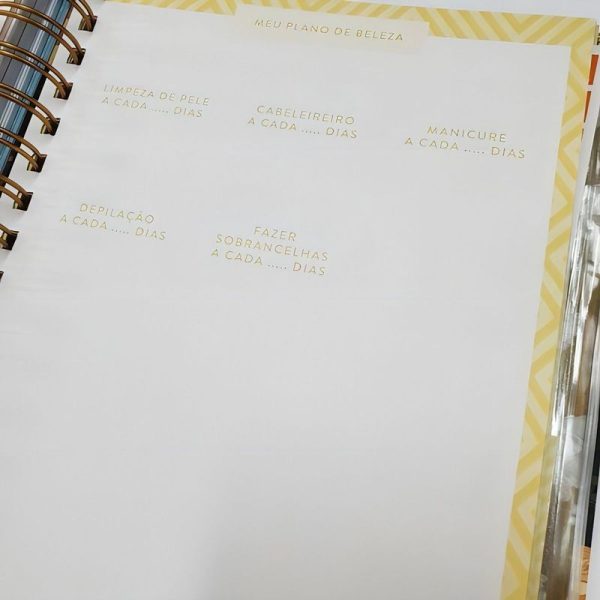 MEU PLANO DE BELEZA
LIMPEZA DE PELE
A CADA ..... DIAS
CABELEIREIRO
A CADA ..... DIAS
MANICURE
A CADA ..... DIAS
DEPILAÇÃO
A CADA ..... DIAS
FAZER
SOBRANCELHAS
A CADA ..... DIAS